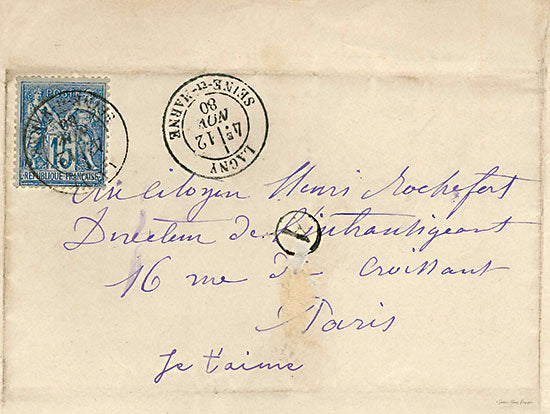 POSTES
15
RÉPUBLIQUE FRANÇAISE
SEINE-ET-MARNE
LAGNY
4E/12
NOV
80
Au Citoyen Henri Rochefort
Directeur de L'Intransigeant
16 rue du Croissant
Paris
Je t'aime